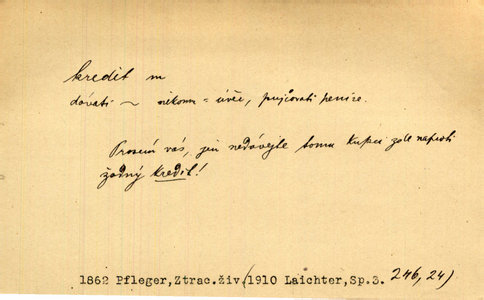 kredit m
dávati ~ někomu = úvěr, půjčovati peníze.
Prosím vás, jen nedávejte tomu kupci zde naproti
žádný kredit!
1862 Pfleger,Ztrac.živ.(1910 Laichter,Sp.3. 246,24)